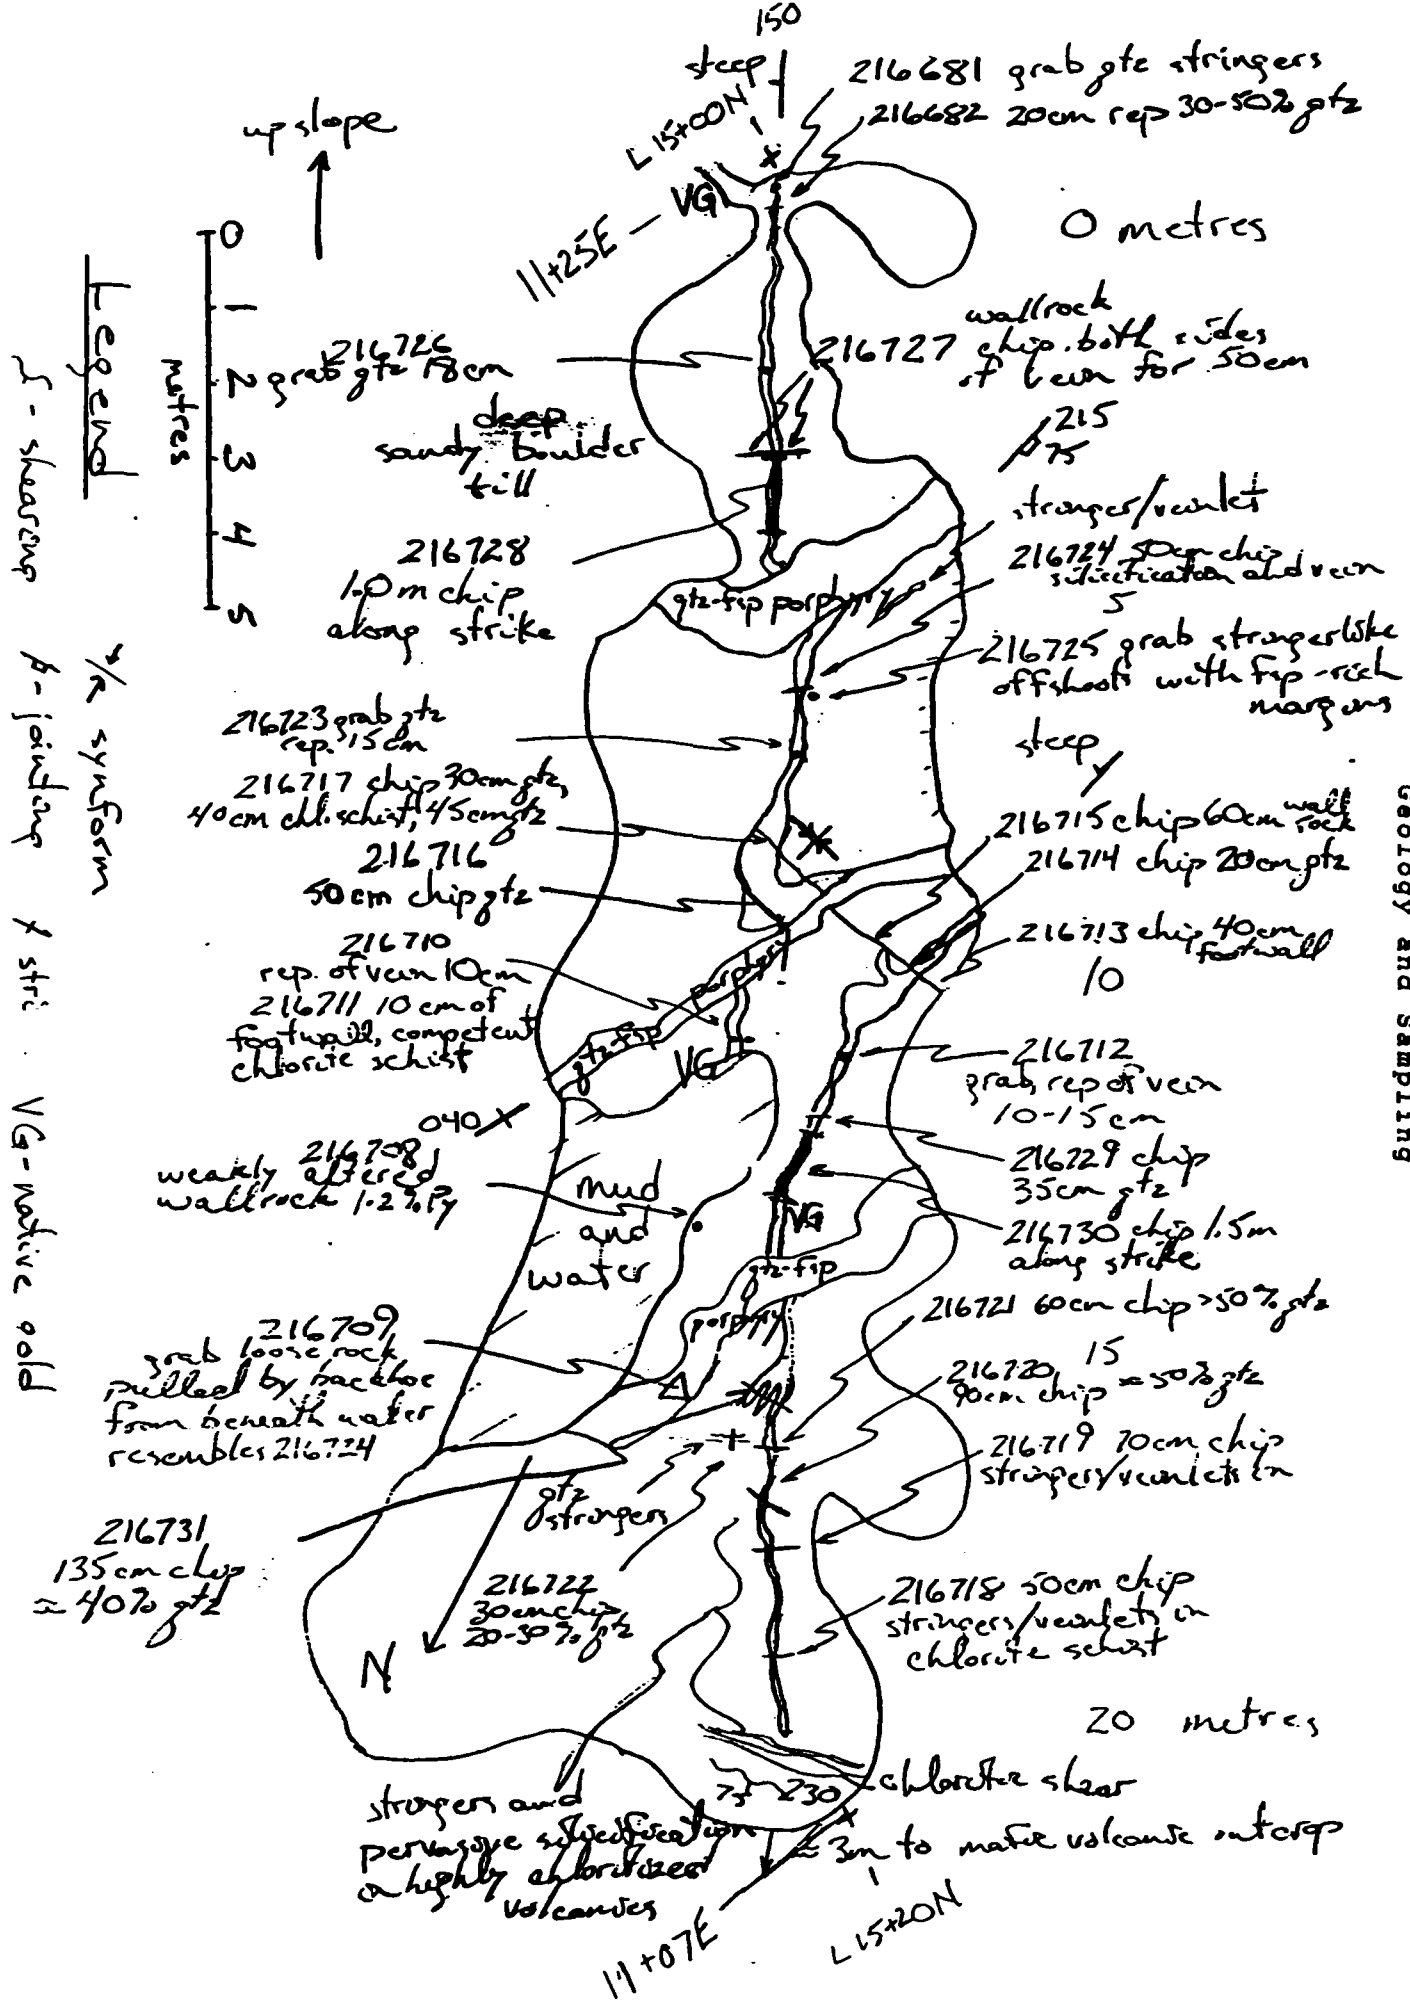 150
steep
216681 grab qtz stringers
216682 20cm rep 30-50% qtz
L 15+00N
up slope
VG
11+25E
0 metres
0
1
2
3
4
5
metres
216726
grab qtz 18cm
216727
wallrock
chip both sides
of vein for 50cm
deep
sandy boulder
till
215
75
stringer/veinlet
216728
1.0m chip
along strike
216724 50cm chip
silicification and vein
5
qtz-fsp porphyry
216725 grab stringerlike
offshoots with fsp-rich
margins
216723 grab qtz
rep. 15cm
steep
216717 chip 30cm qtz,
40cm chl. schist, 45cm qtz
216715 chip 60cm wall
rock
216714 chip 20cm qtz
216716
50cm chip qtz
216713 chip 40cm
footwall
10
216710
rep. of vein 10cm
216711 10cm of
footwall, competent
chlorite schist
qtz-fsp porphyry
VG
216712
grab, rep of vein
10-15cm
040
216708
weakly altered
wallrock 1-2% Py
mud
and
water
216729 chip
35cm qtz
VG
216730 chip 1.5m
along strike
qtz-fsp
porphyry
216721 60cm chip >50% qtz
216709
grab loose rock
pulled by backhoe
from beneath water
resembles 216724
15
216720
90cm chip ≈50% qtz
216719 70cm chip
stringers/veinlets in
qtz
stringers
216731
135cm chip
≈ 40% qtz
216722
30cm chip
20-30% qtz
216718 50cm chip
stringers/veinlets in
chlorite schist
N
20 metres
75 230
chlorite shear
stringers and
pervasive silicification
in highly chloritized
volcanics
≈ 3m to mafic volcanic outcrop
11+07E
L 15+20N
Legend
shearing
jointing
synform
stri
VG-native gold
Geology and Sampling